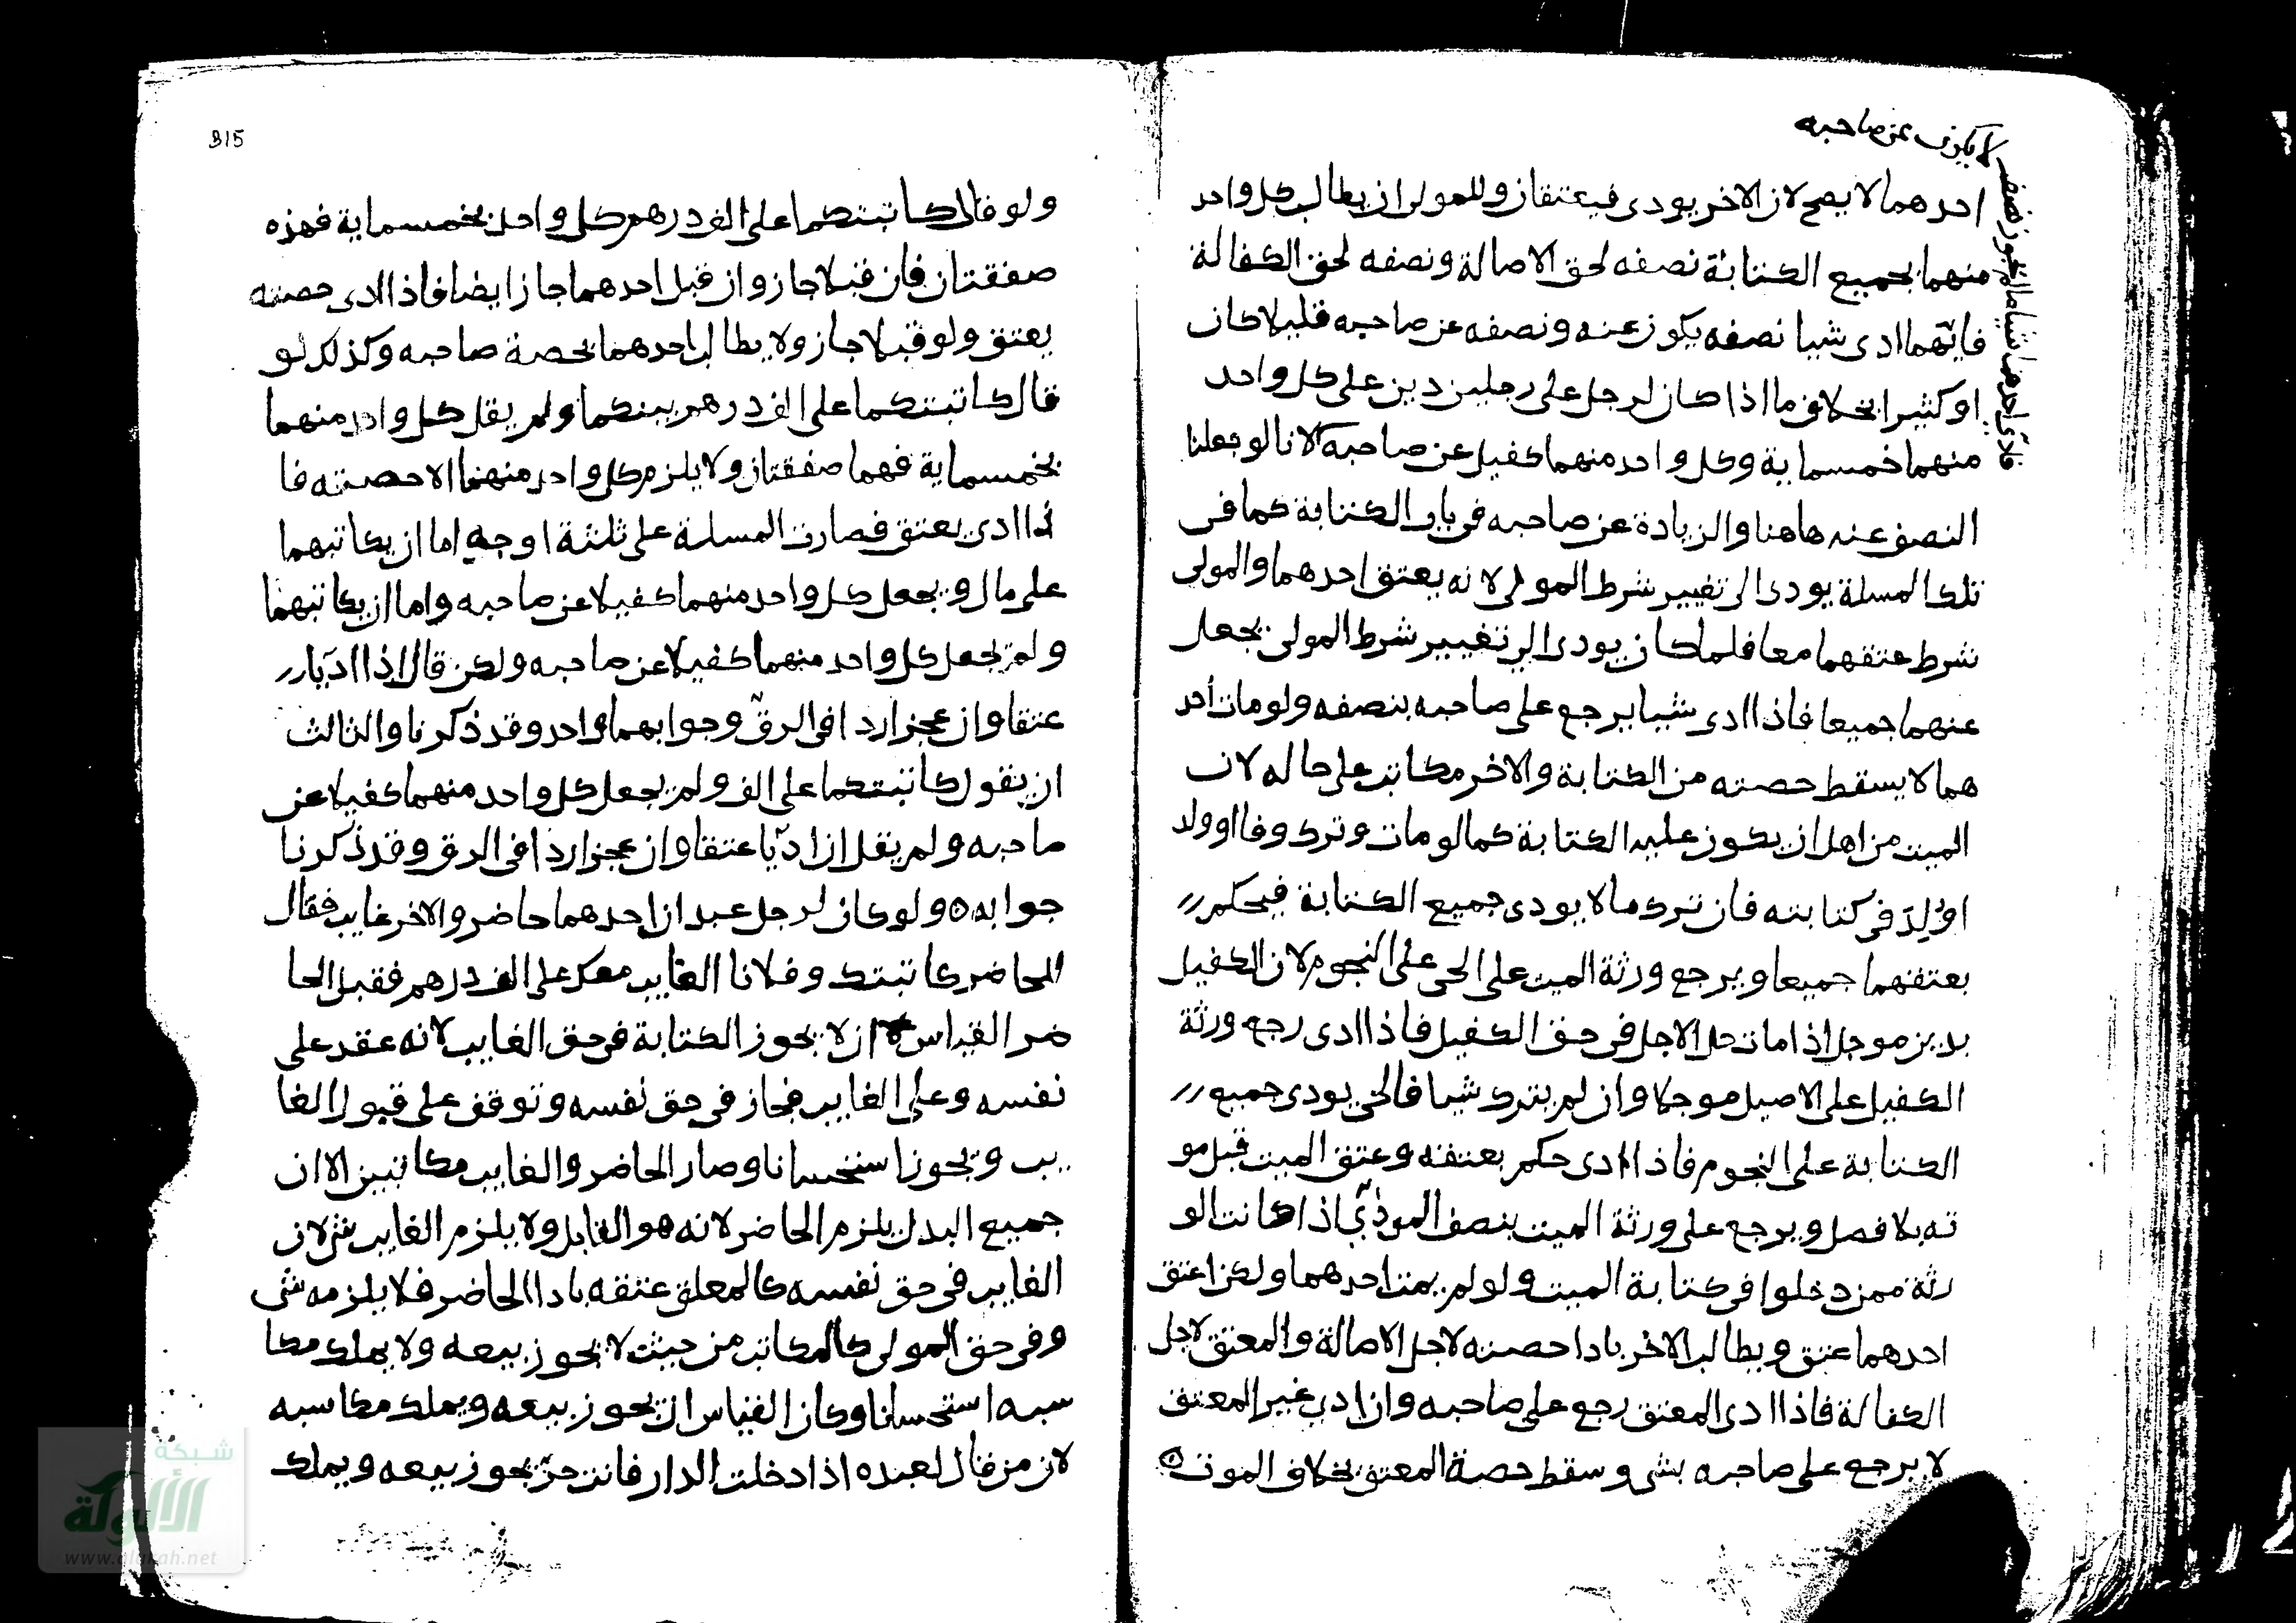 لا يكون عن صاحبه
احدهما لا يصح لان الاخر يودى فيعتقان وللمولى ان يطالب كل واحد
منهما بجميع الكتابة نصفه لحق الاصالة ونصفه لحق الكفالة
فايهما ادى شيا نصفه يكون عنه ونصفه عن صاحبه قليلا كان
او كثيرا بخلاف ما اذا كان لرجل على رجلين دين على كل واحد
منهما خمسماية وكل واحد منهما كفيل عن صاحبه لانا لو جعلنا
النصف عنه هاهنا والزيادة عن صاحبه فى باب الكتابة كما فى
تلك المسلة يودى الى تغيير شرط المولى لانه يعتق احدهما والمولى
شرط عتقهما معا فلما كان يودى الى تغيير شرط المولى يجعل
عنهما جميعا فاذا ادى شيا يرجع على صاحبه بنصفه ولو مات أحد
هما لا يسقط حصته من الكتابة والاخر مكاتب على حاله لان
الميت من اهل ان يكون عليه الكتابة كما لو مات وترك وفا او ولد
او ولد فى كتابته فان ترك مالا يودى جميع الكتابة فيحكم
بعتقهما جميعا ويرجع ورثة الميت على الحى على النجوم لان الكفيل
بدين موجل اذا مات حل الاجل فى حق الكفيل فاذا ادى رجع ورثة
الكفيل على الاصيل موجلا وان لم يترك شيا فالحى يودى جميع
الكتابة على النجوم فاذا ادى حكم بعتقه وعتق الميت قبل مو
ته بلا فصل ويرجع على ورثة الميت بنصف المودى اذا كانت الو
رثة ممن دخلوا فى كتابة الميت ولو لم يمت احدهما ولكن اعتق
احدهما عتق ويطالب الاخر بادا حصته لاجل الاصالة والمعتق لاجل
الكفالة فاذا ادى المعتق رجع على صاحبه وان ادى غير المعتق
لا يرجع على صاحبه بشى وسقط حصة المعتق بخلاف الموت ه
315
ولو قال كاتبتكما على الف درهم كل واحد بخمسماية فهذه
صفقتان فان قبلا جاز وان قبل احدهما جاز ايضا فاذا ادى حصته
يعتق ولو قبلا جاز ولا يطالب احدهما بحصة صاحبه وكذلك لو
قال كاتبتكما على الف درهم بينكما ولم يقل كل واحد منهما
بخمسماية فهما صفقتان ولا يلزم كل واحد منهما الا حصته فا
ذا ادى يعتق فصارت المسلة على ثلثة اوجه اما ان يكاتبهما
على مال ويجعل كل واحد منهما كفيلا عن صاحبه واما ان يكاتبهما
ولم يجعل كل واحد منهما كفيلا عن صاحبه ولكن قال اذا اديا
عتقا وان عجزا ردا فى الرق وجوابهما واحد وقد ذكرنا والثالث
ان يقول كاتبتكما على الف ولم يجعل كل واحد منهما كفيلا عن
صاحبه ولم يقل ان اديا عتقا وان عجزا ردا فى الرق وقد ذكرنا
جوابه ه ولو كان لرجل عبدان احدهما حاضر والاخر غايب فقال
للحاضر كاتبتك وفلانا الغايب معك على الف درهم فقبل الحا
ضر القياس ان لا يجوز الكتابة فى حق الغايب لانه عقد على
نفسه وعلى الغايب فجاز فى حق نفسه وتوقف على قبول الغا
يب ويجوز استحسانا وصار الحاضر والغايب مكاتبين الا ان
جميع البدل يلزم الحاضر لانه هو القابل ولا يلزم الغايب شى لان
الغايب فى حق نفسه كالمعلق عتقه بادا الحاضر فلا يلزمه شى
وفى حق المولى كالمكاتب من حيث لا يجوز بيعه ولا يملك مكا
سبه استحسانا وكان القياس ان يجوز بيعه ويملك مكاسبه
لان من قال لعبده اذا دخلت الدار فانت حر يجوز بيعه ويملك
شبكة
الألوكة
www.alukah.net